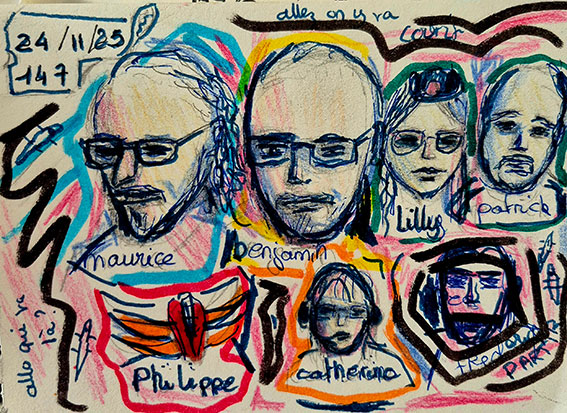 24/11/25
147
allez on y va
courir
Lilly
patrick
maurice
benjamin
Philippe
catherine
PARTY
allo qui va
là?